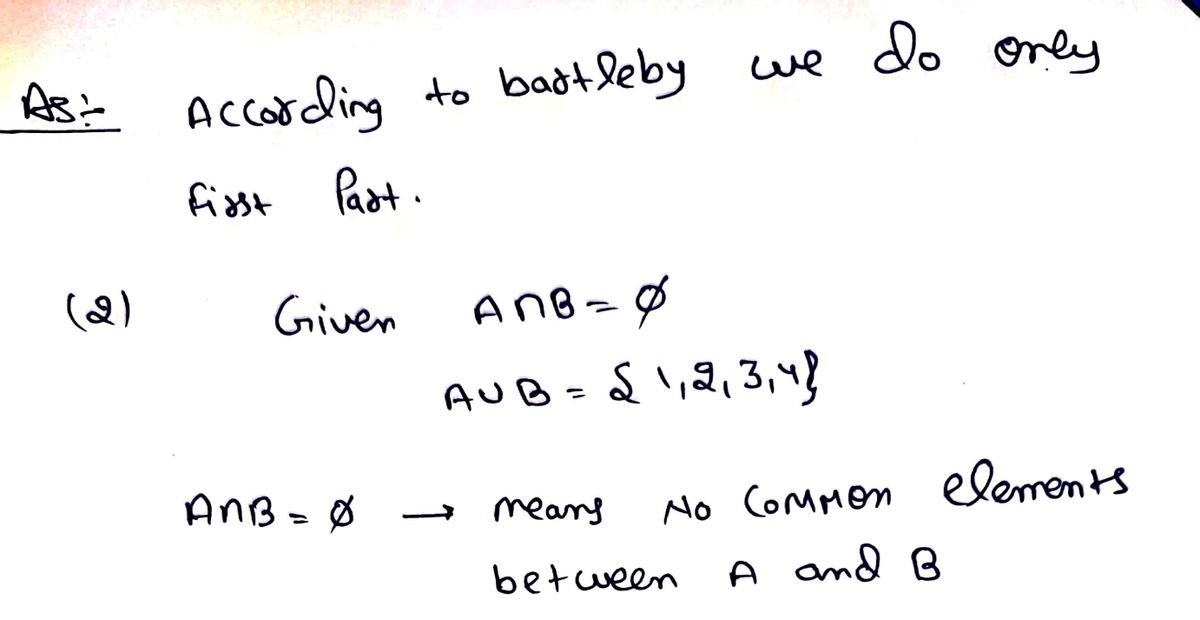 As:- According to bartleby we do only
first Part.
(2) Given A∩B = ∅
A∪B = {1,2,3,4}
A∩B = ∅ → means No Common elements
between A and B